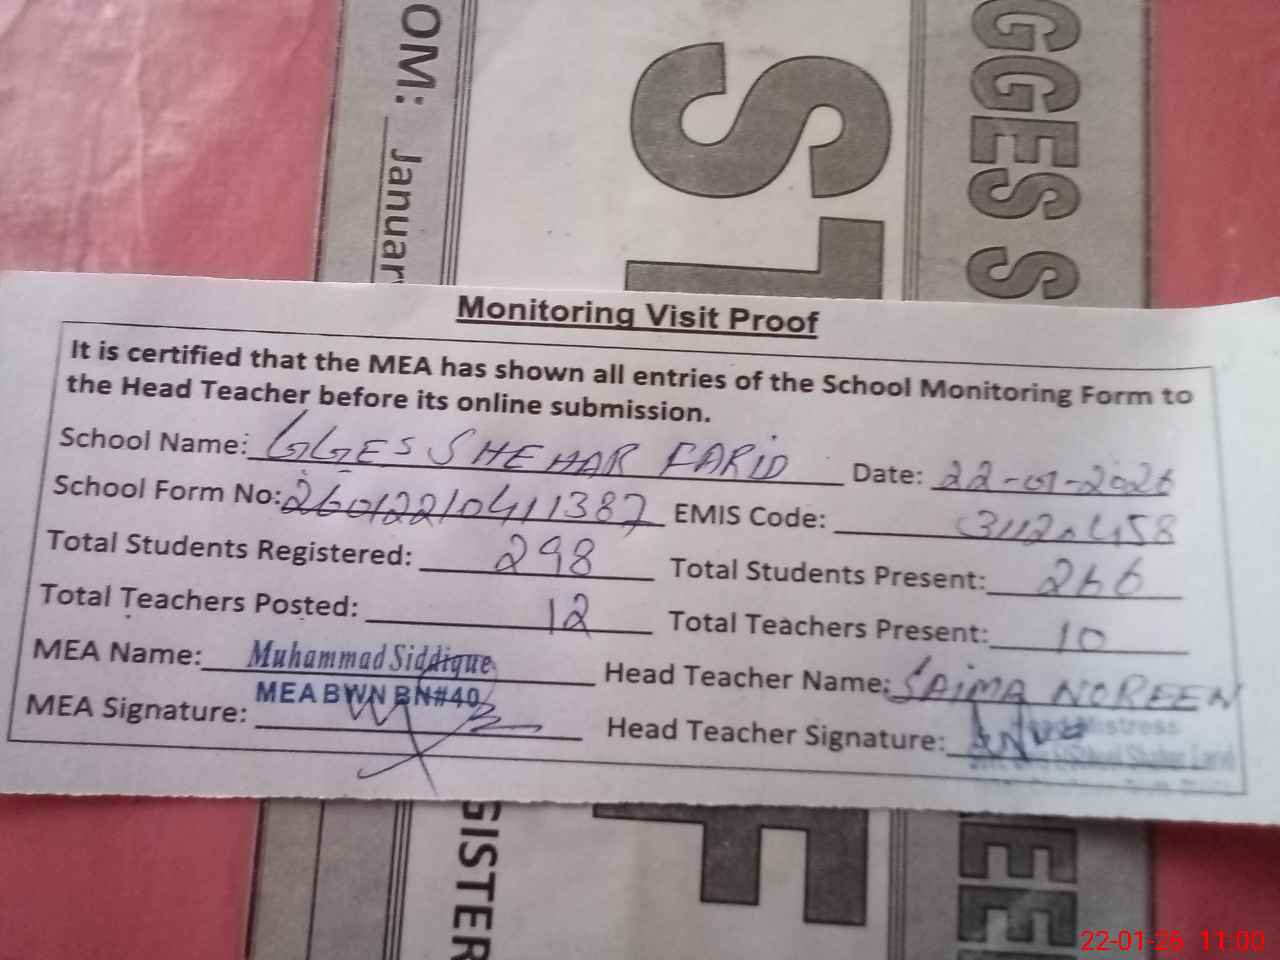 OM: Januar
ST
GGES S
Monitoring Visit Proof
It is certified that the MEA has shown all entries of the School Monitoring Form to
the Head Teacher before its online submission.
School Name: GGES SHEHAR FARID Date: 22-01-2026
School Form No: 26012210411387 EMIS Code: 31120458
Total Students Registered: 298 Total Students Present: 266
Total Teachers Posted: 12 Total Teachers Present: 10
MEA Name: Muhammad Siddique Head Teacher Name: SAIMA NOREEN
MEA BWN BN#40
MEA Signature: Head Teacher Signature:
Mistress
School
GISTER
22-01-26 11:00